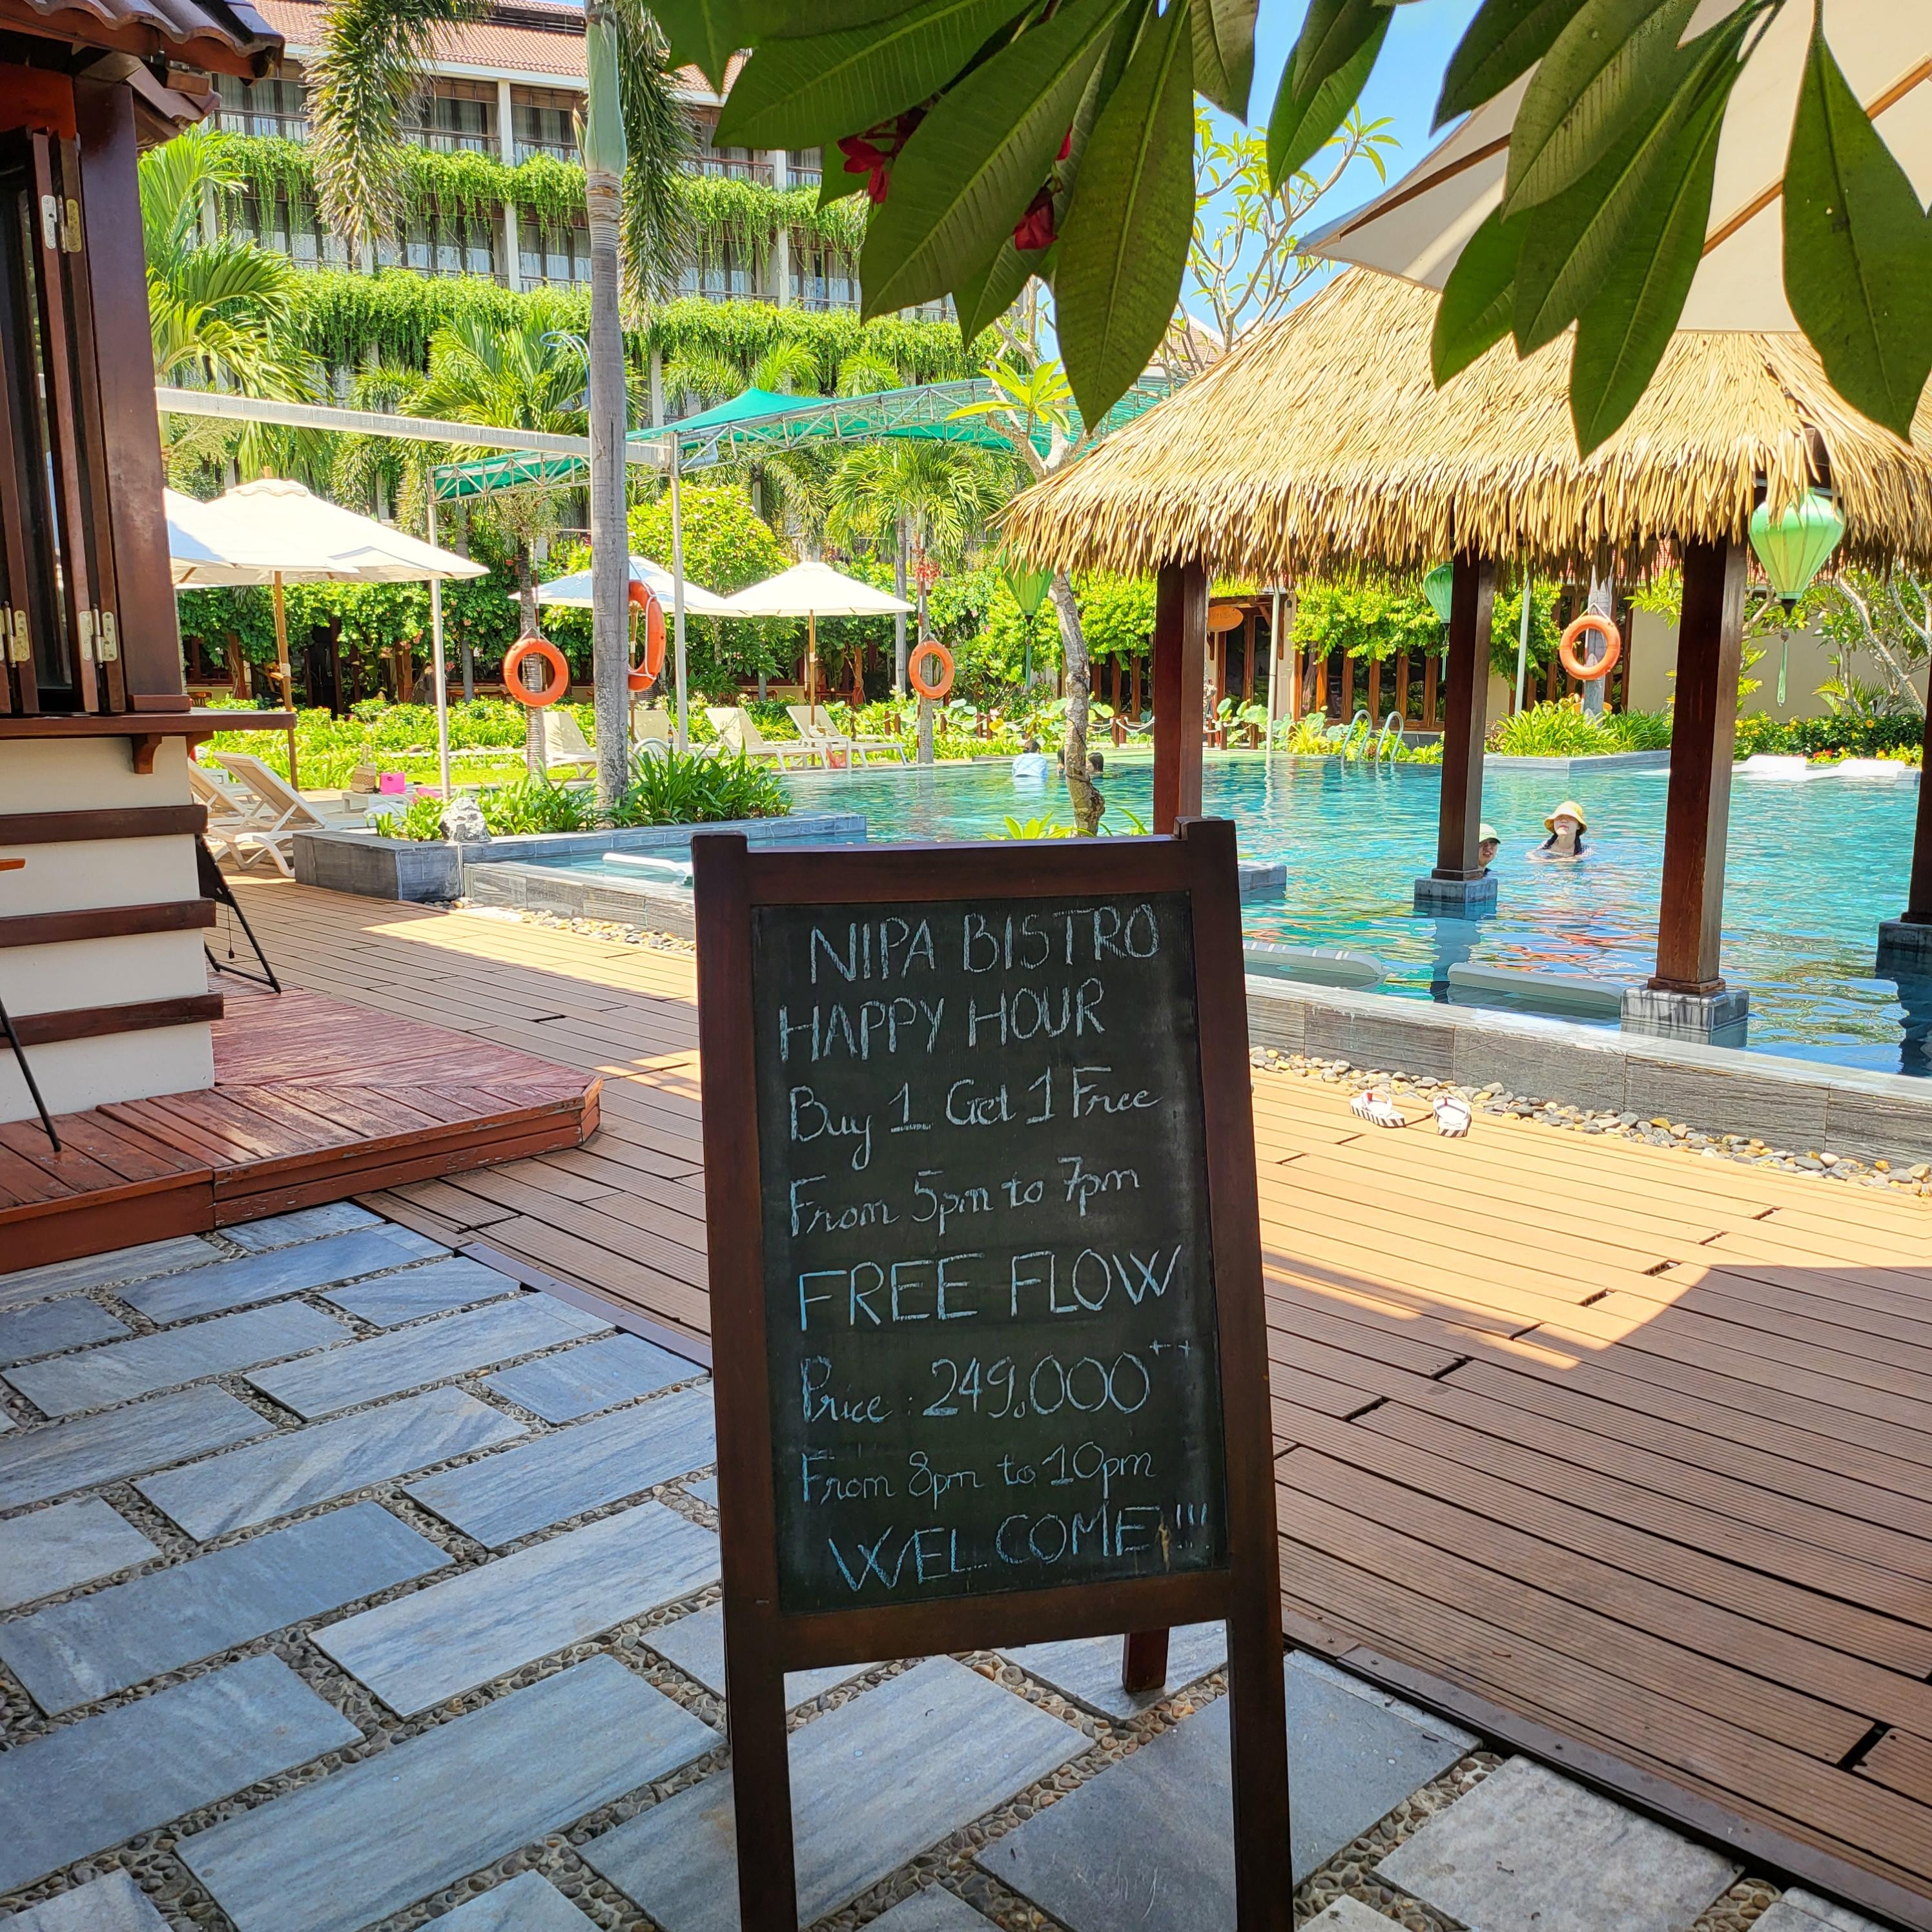 NIPA BISTRO
HAPPY HOUR
Buy 1 Get 1 Free
From 5pm to 7pm
FREE FLOW
Price : 249.000++
From 8pm to 10pm
WELCOME!!!